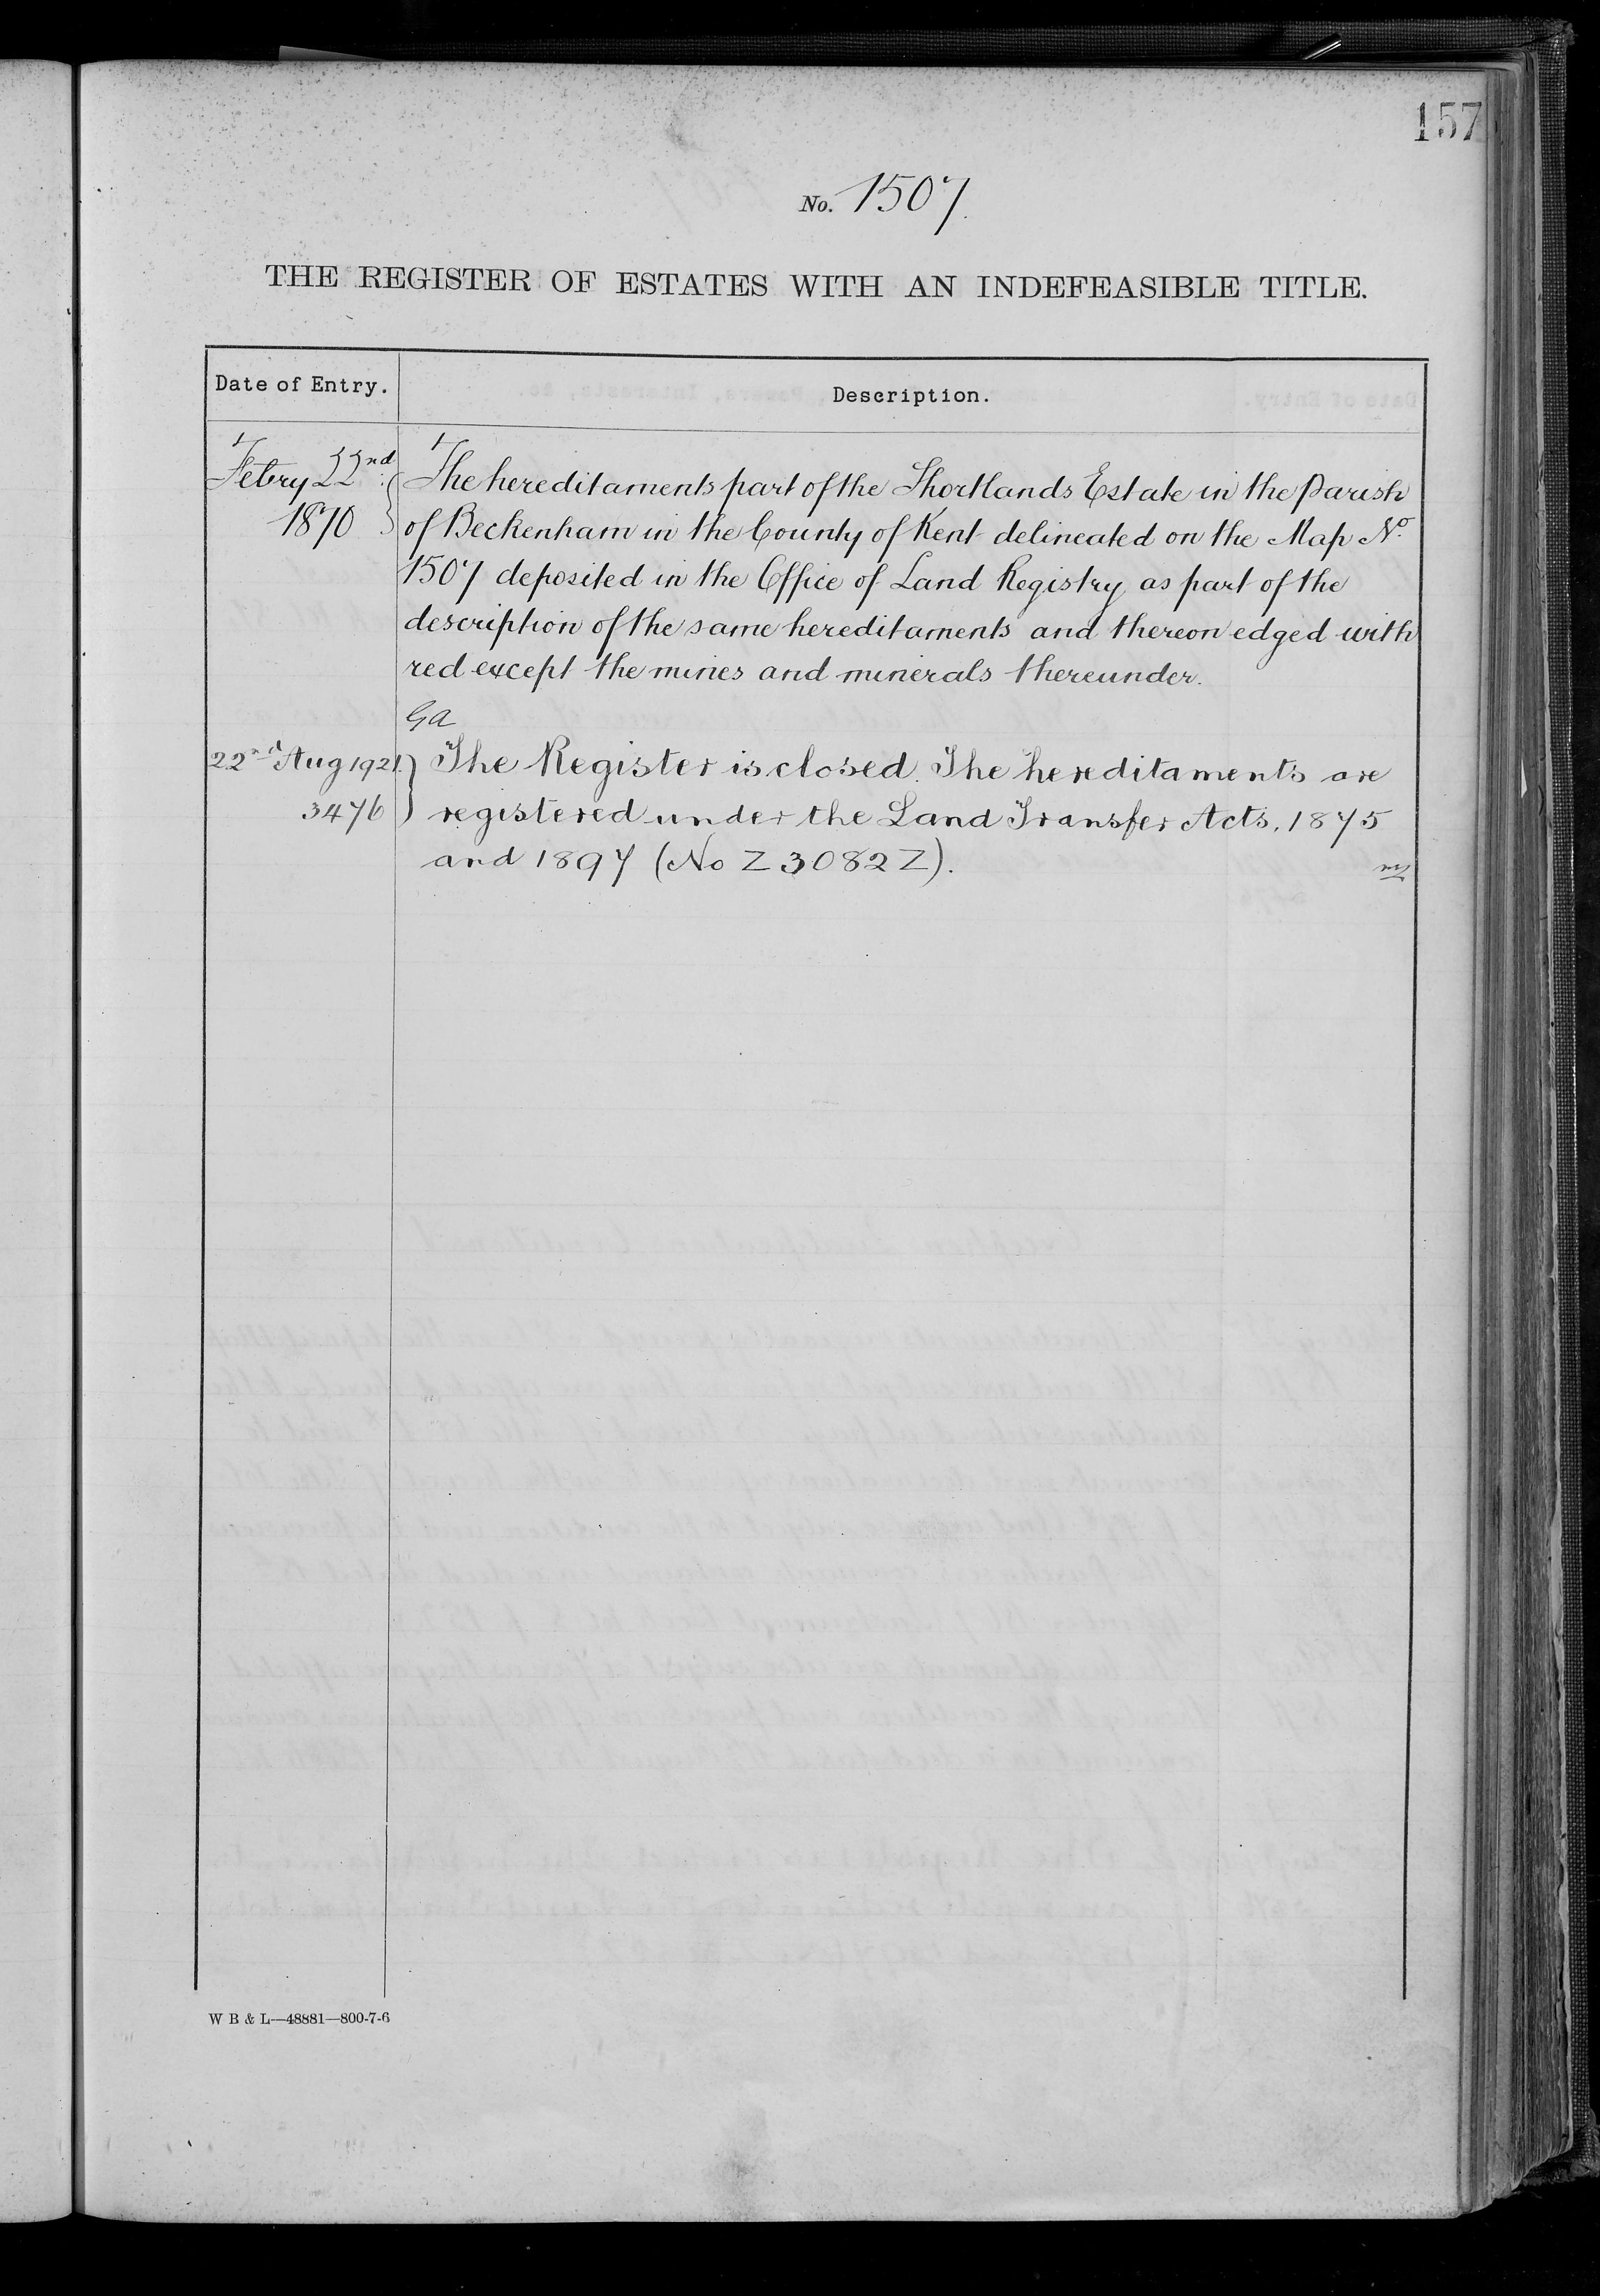 157
No. 1507.
THE REGISTER OF ESTATES WITH AN INDEFEASIBLE TITLE.
Date of Entry.
Description.
Febry 22nd
1870
The hereditaments part of the Shortlands Estate in the Parish
of Beckenham in the County of Kent delineated on the Map No.
1507 deposited in the Office of Land Registry as part of the
description of the same hereditaments and thereon edged with
red except the mines and minerals thereunder.
GA
22nd Aug 1921.
3476
The Register is closed. The hereditaments are
registered under the Land Transfer Acts, 1875
and 1897 (No Z 3082 Z).
W B & L—48881—800-7-6